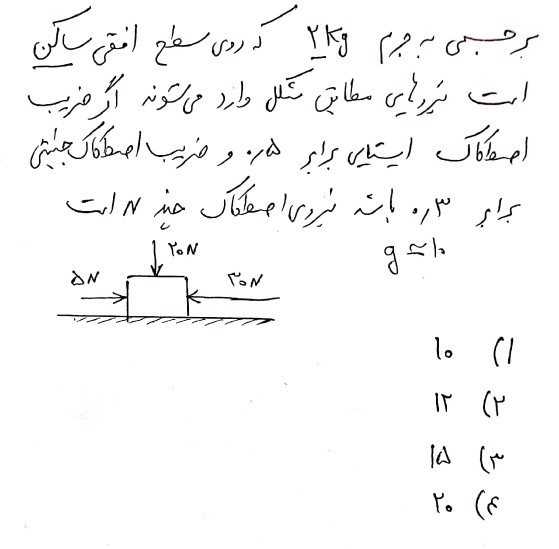 بر جسمی به جرم ۲Kg که روی سطح افقی ساکن
است نیروهایی مطابق شکل وارد می‌شوند اگر ضریب
اصطکاک ایستایی برابر ۰٫۵ و ضریب اصطکاک جنبشی
برابر ۰٫۳ باشد نیروی اصطکاک چند N است
g ≃ ۱۰
۲۰N
۵N
۳۰N
۱) ۱۰
۲) ۱۲
۳) ۱۵
۴) ۲۰